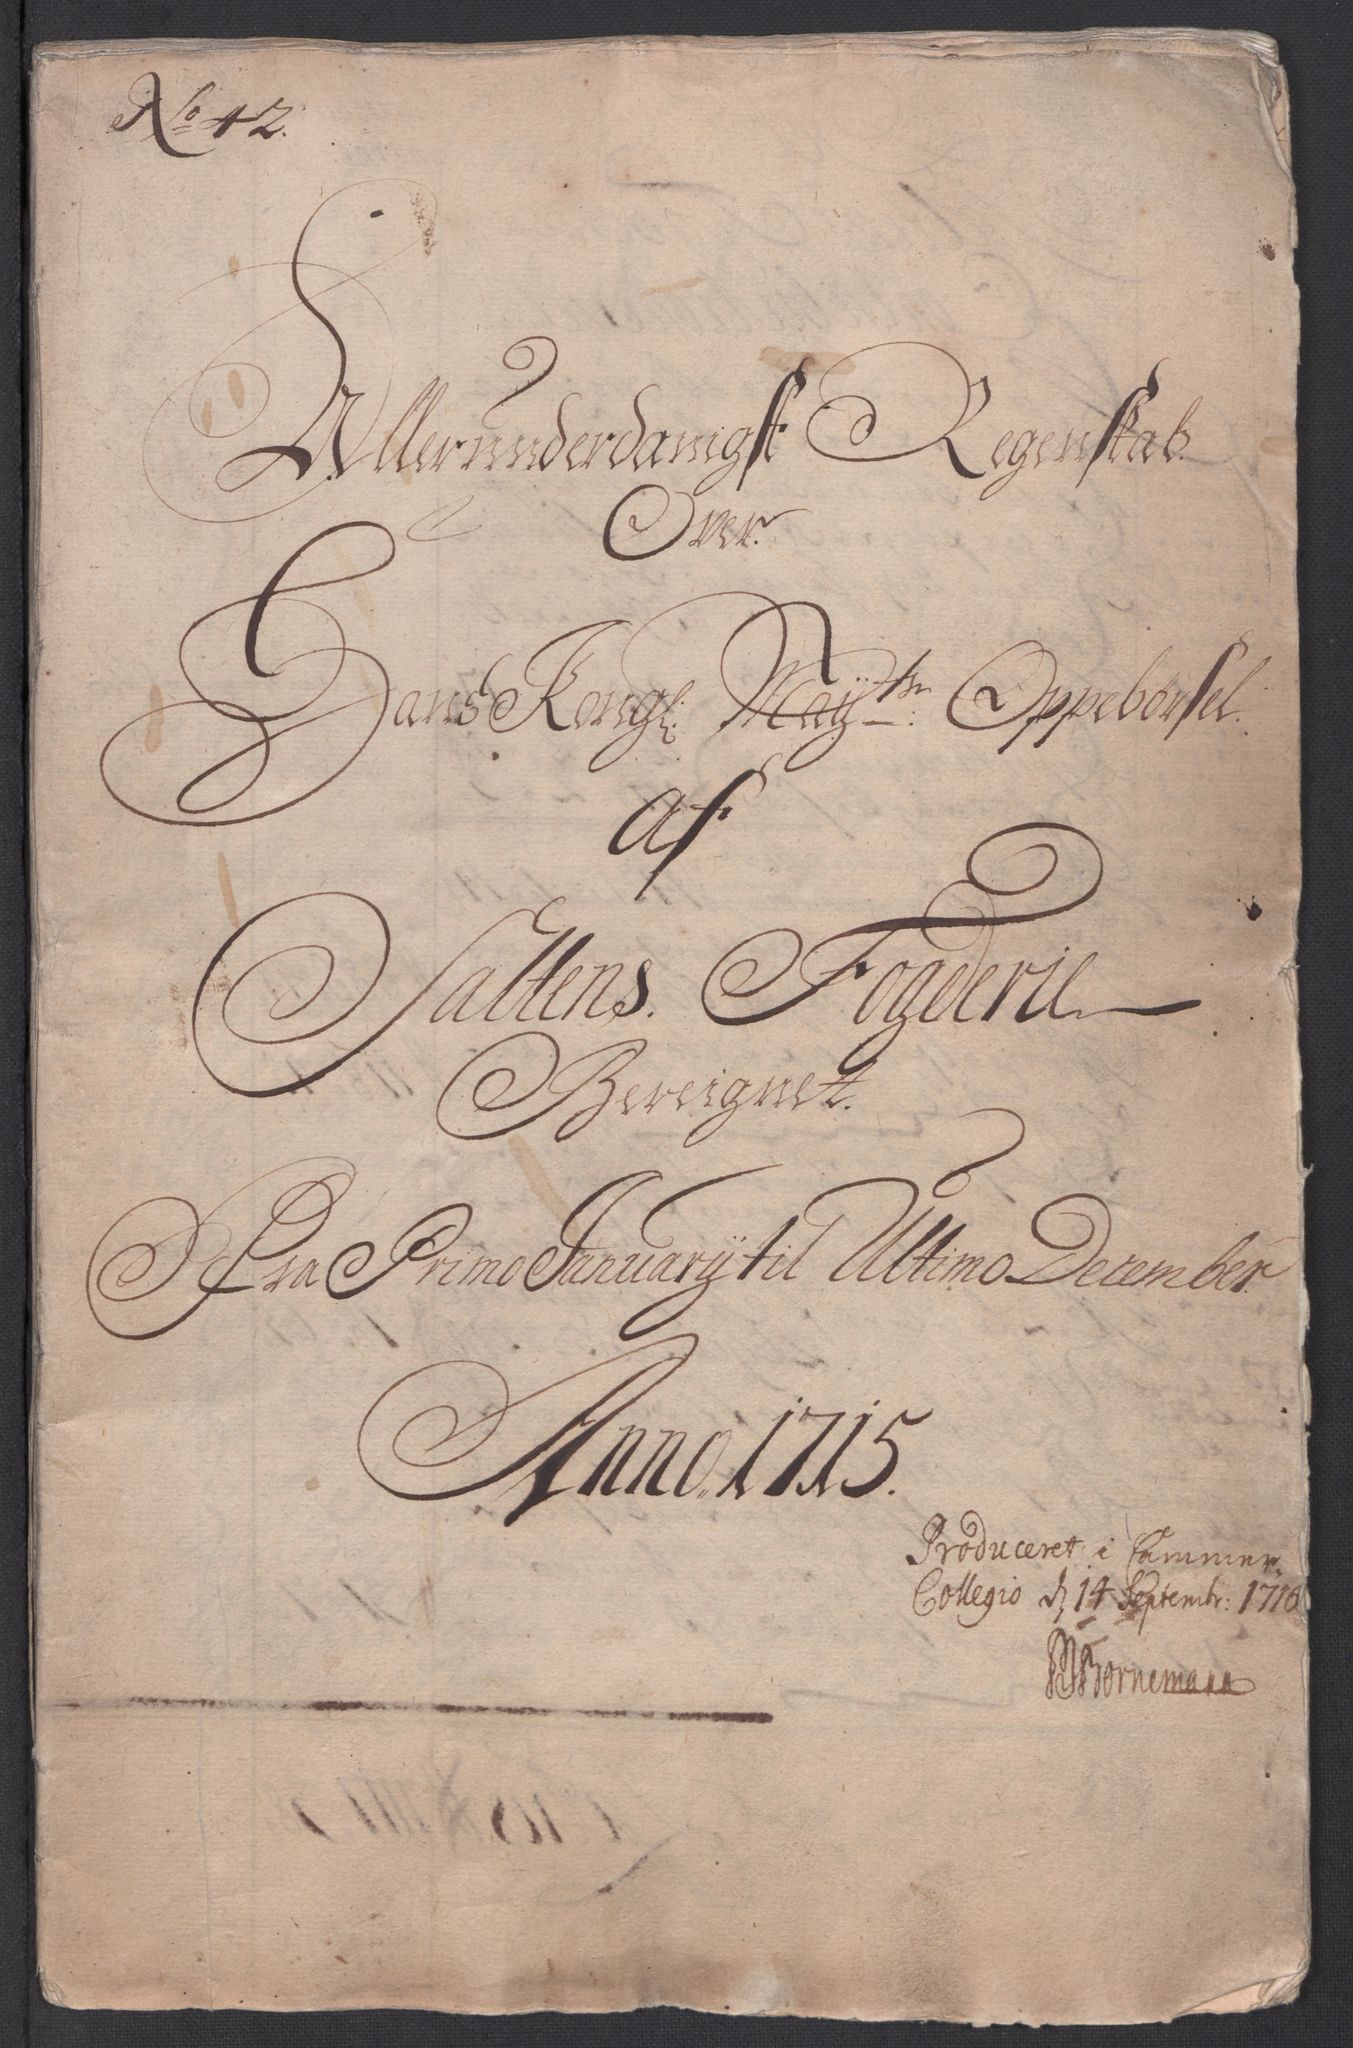 No 42.
Allerunderdanigst Regenskab
Over
Hans Kongl: Mayts: Oppebørsel
af
Saltens Fogderie
Bereignet
Fra Primo January til Ultimo December
Anno 1715.
Produceret i Cammer
Collegio d. 14 Septembr: 1716
Bornemann